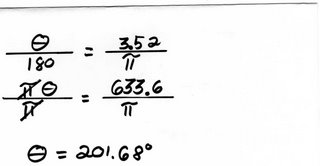 θ/180 = 3.52/π
πθ/π = 633.6/π
θ = 201.68°